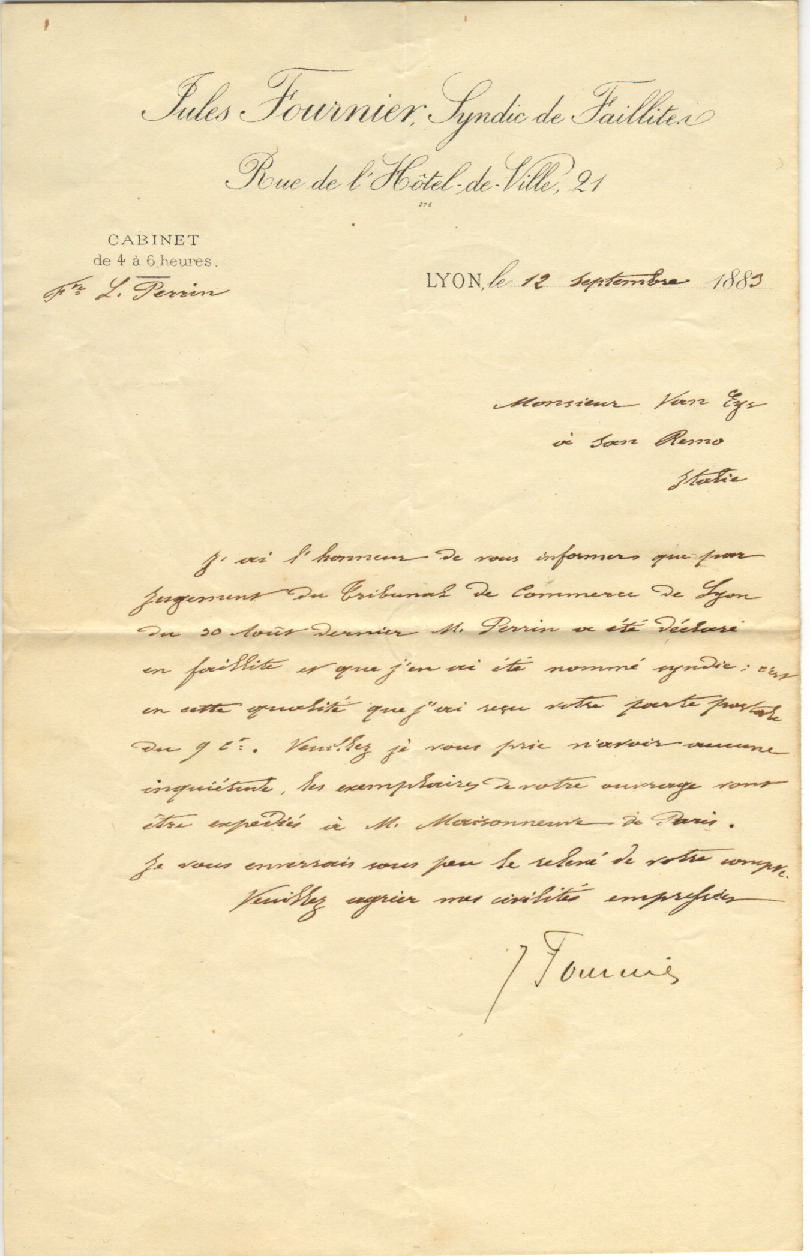 Jules Fournier, Syndic de Faillites
Rue de l'Hôtel-de-Ville, 21
CABINET
de 4 à 6 heures.
Fte L. Perrin
LYON, le 12 Septembre 1883
Monsieur Van Eys
à San Remo
Italie
J'ai l'honneur de vous informer que par
jugement du Tribunal de Commerce de Lyon
du 30 Août dernier M. Perrin a été déclaré
en faillite et que j'en ai été nommé syndic : c'est
en cette qualité que j'ai reçu votre carte postale
du 9 ct. Veuillez je vous prie n'avoir aucune
inquiétude, les exemplaires de votre ouvrage vont
être expédiés à M. Maisonneuve de Paris.
Je vous enverrais sous peu le relevé de votre compte.
Veuillez agréer mes civilités empressées
J Fournier